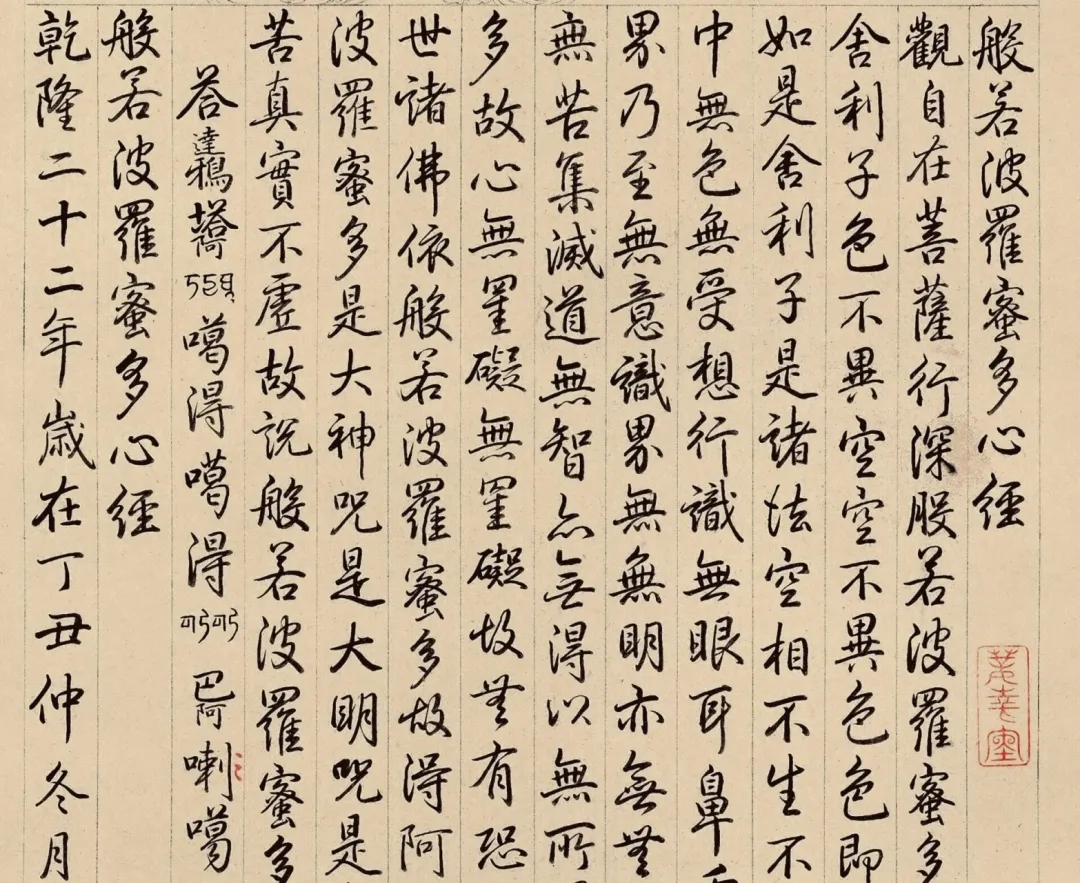 般若波羅蜜多心經
觀自在菩薩行深般若波羅蜜多
舍利子色不異空空不異色色即
如是舍利子是諸法空相不生不
中無色無受想行識無眼耳鼻舌
界乃至無意識界無無明亦無無
無苦集滅道無智亦無得以無所
多故心無罣礙無罣礙故無有恐
世諸佛依般若波羅蜜多故得阿
波羅蜜多是大神咒是大明咒是
苦真實不虛故說般若波羅蜜多
答達鴉塔噶得噶得巴阿喇噶
般若波羅蜜多心經
乾隆二十二年歲在丁丑仲冬月